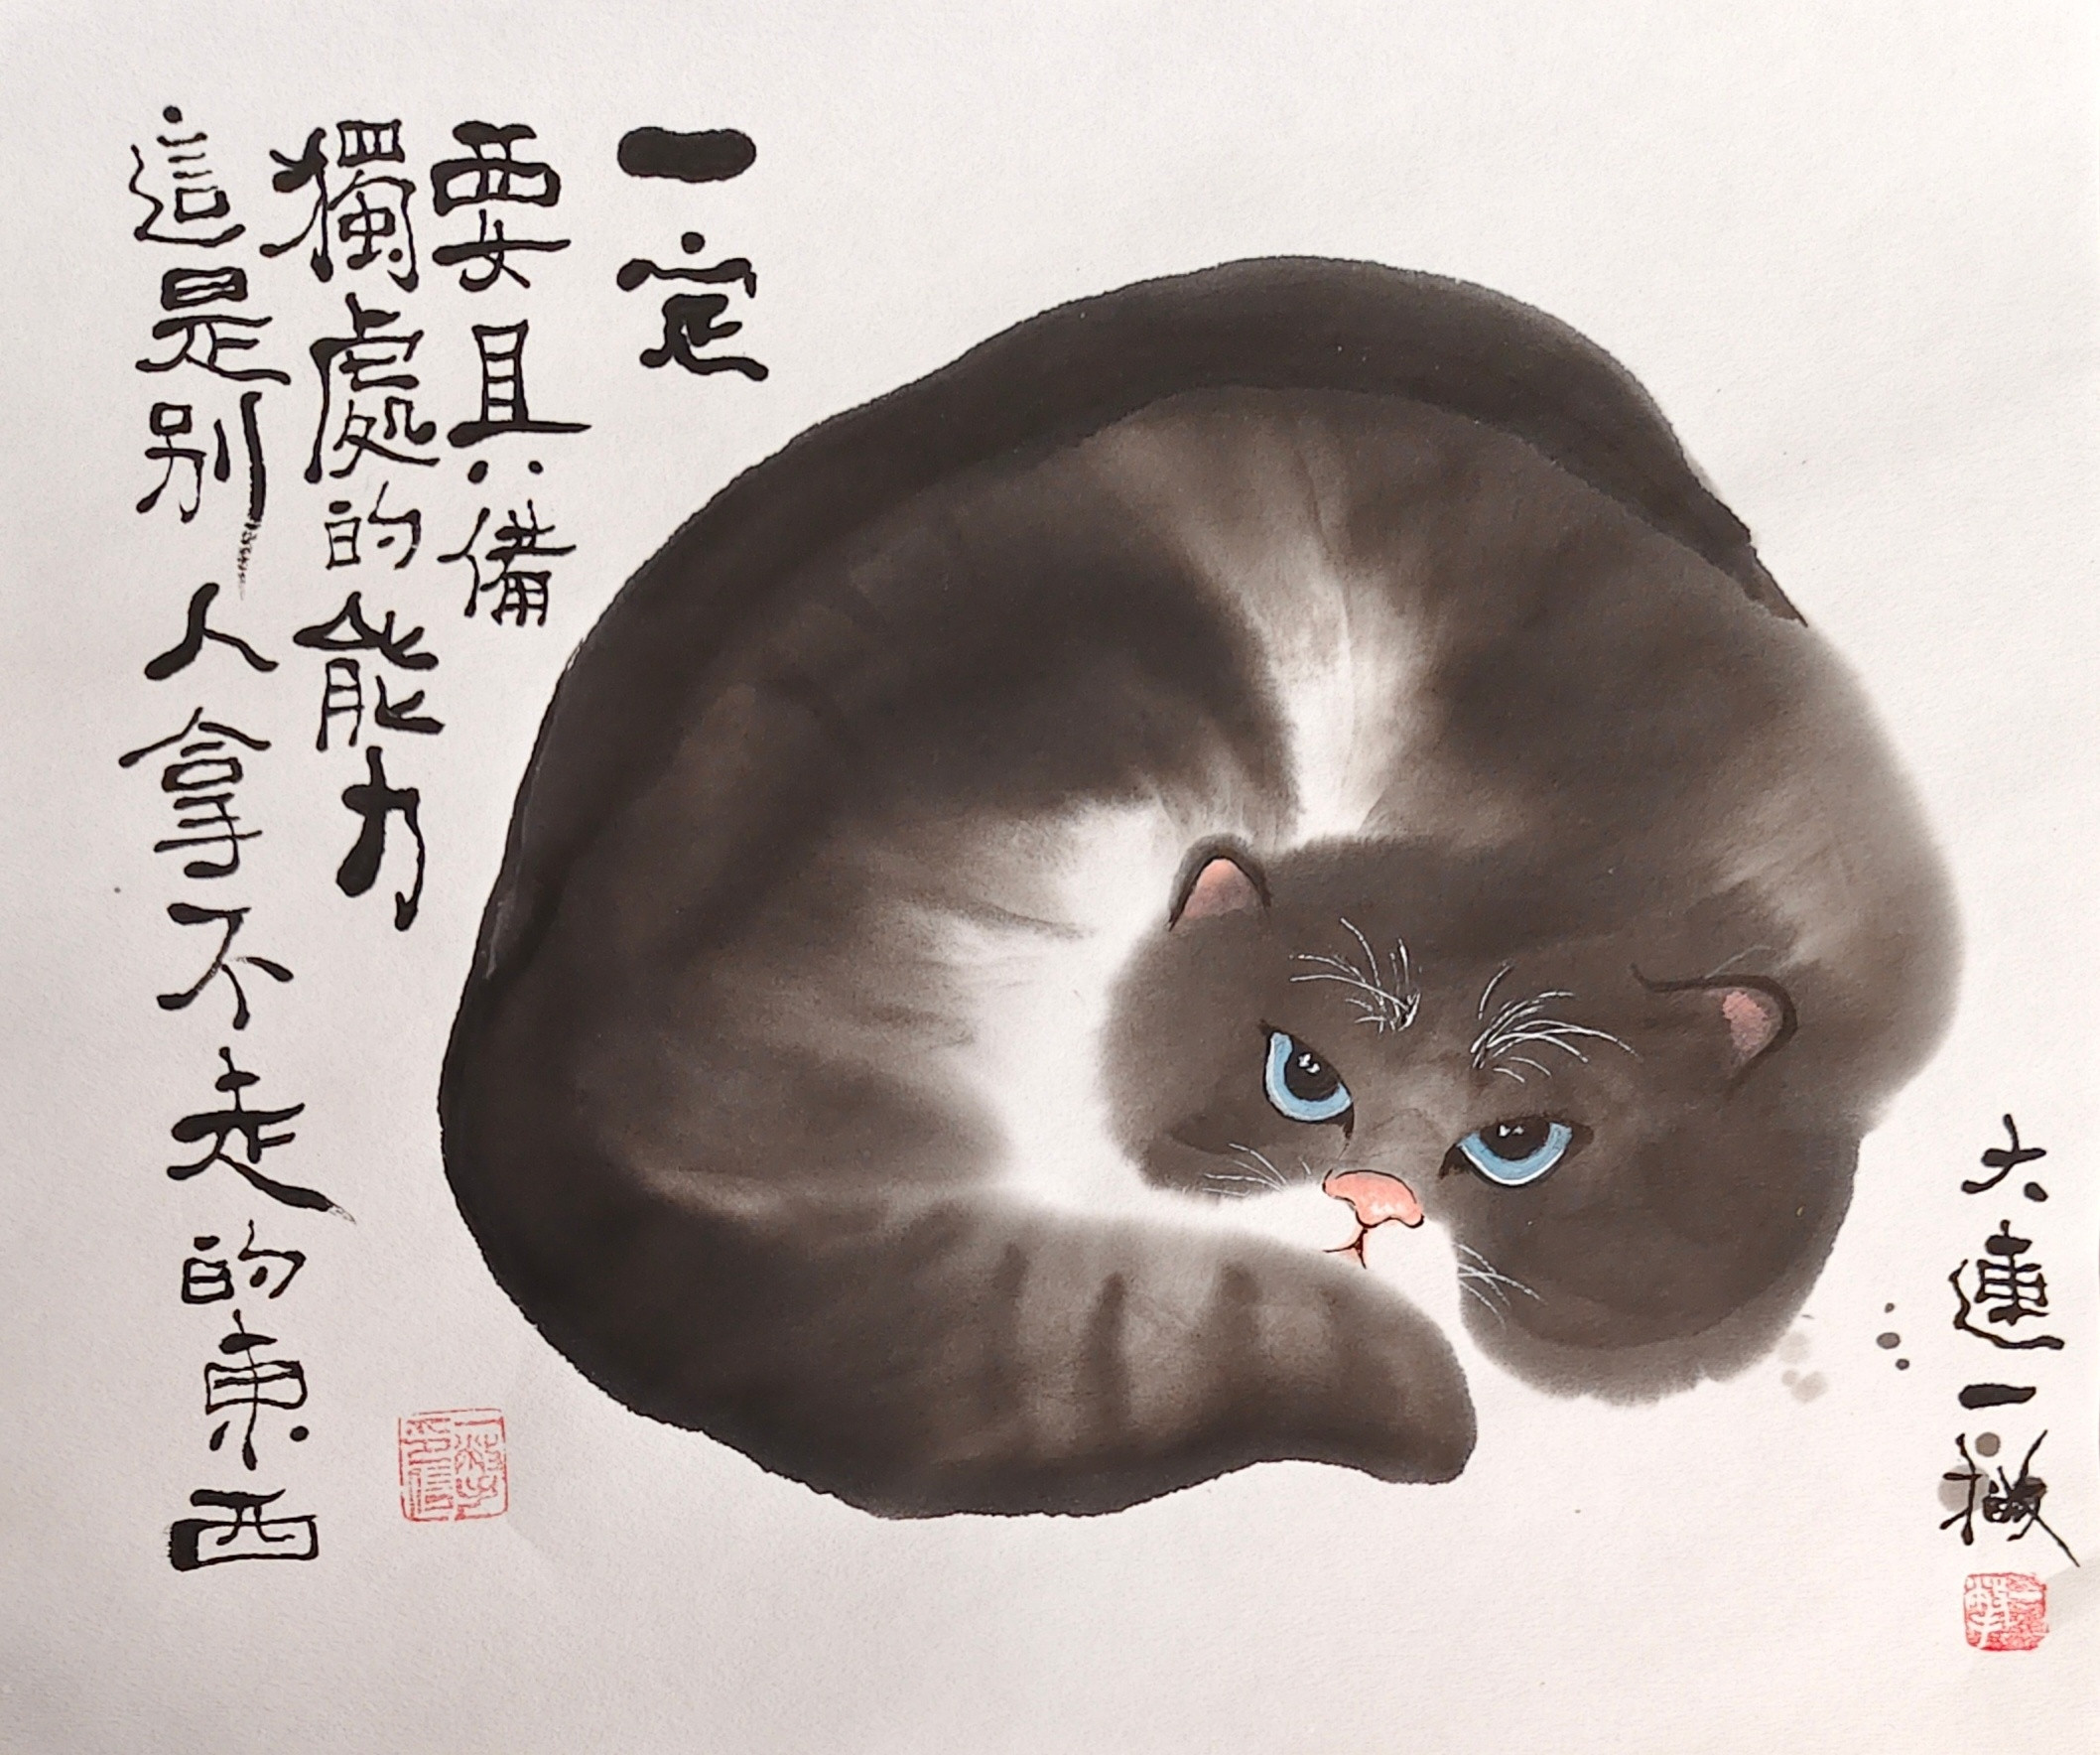 一定
要具備
獨處的能力
這是别人拿不走的東西
大連一撇